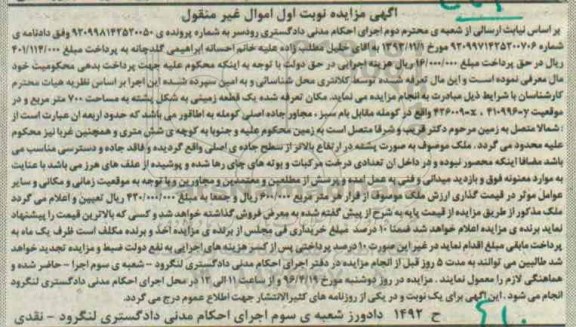 آگهی مزایده نوبت اول اموال غیر منقول
بر اساس نیابت ارسالی از شعبه ی محترم دوم اجرای احکام مدنی دادگستری رودسر به شماره پرونده ی ۹۲۰۹۹۸۱۴۲۵۲۰۰۵۰ وفق دادنامه ی
شماره ۹۲۰۹۹۷۱۴۲۵۲۰۰۷۰۶ مورخ ۱۳۹۲/۱۱/۱ به آقای خلیل مطلب زاده علیه خانم احساانه ابراهیمی گلدچانه به پرداخت مبلغ ۴۰۱/۱۱۴/۰۰۰
ریال در حق پرداخت مبلغ ۱۶/۰۰۰/۰۰۰ ریال هزینه اجرایی در حق دولت با توجه به اینکه محکوم علیه جهت پرداخت بدهی محکومیت خود
مال معرفی نموده است و این مال تعرفه شده توسط کلانتری محل شناسائی و به امین سپرده شده این اجرا بر اساس نظریه هیات محترم
کارشناسان با شرایط ذیل مبادرت به انجام مزایده می نماید. مکان تعرفه شده یک قطعه زمینی به شکل پشته به مساحت ۷۰۰ متر مربع و در
موقعیت ۴۱۰۹۹۶۰y ، ۴۳۶۰۰۹۰x واقع در کومله مقابل بام سبز ، مجاور جاده اصلی کومله به اطاقور می باشد که حدود اربعه ان عبارت است از
: شمالا متصل به زمین مرحوم دکتر قریب و شرقا متصل است به زمین محکوم علیه و جنوبا به کوچه ی شش متری و همچنین غربا نیز محکوم
علیه محدود می گردد . ملک موصوف به صورت پشته در ارتفاع بالاتر از سطح جاده ی اصلی واقع گردیده و فاقد جاده و دسترسی مناسب می
باشد مضافا اینکه محصور نبوده و در داخل ان تعدادی درخت مرکبات و بوته های چای رها شده و پوشیده از علف های هرز می باشد با عنایت
به موارد معنونه فوق و بازدید میدانی و فنی به عمل امده و پرسش از مطلعین و معتمدین و مجاورین و با توجه به موقعیت زمانی و مکانی و سایر
عوامل موثر در قیمت گذاری ارزش ملک موصوف از قرار هر متر مربع ۶۰۰/۰۰۰ ریال و جمعا به مبلغ ۴۲۰/۰۰۰/۰۰۰ ریال تعیین و اعلام می گردد
ملک مذکور از طریق مزایده از قیمت پایه به شرح از پیش گفته شده به معرض فروش گذاشته خواهد شد و کسی که بالاترین قیمت را پیشنهاد
نماید برنده ی مزایده اعلام خواهد شد ضمنا ۱۰ درصد مبلغ خریداری فی مجلس از برنده ی مزایده اخذ و برنده مکلف است ظرف یک ماه به
پرداخت مابقی مبلغ اقدام نماید در غیر این صورت ۱۰ درصد پرداختی پس از کسر هزینه های اجرایی به نفع دولت ضبط و مزایده تجدید خواهد
شد طالبین می توانند به مدت ۵ روز قبل از انجام مزایده در دفتر اجرای احکام مدنی دادگستری لنگرود - شعبه ی سوم اجرا - حاضر شده و
هماهنگی لازم را معمول نمایند . مزایده در روز دوشنبه مورخ ۹۶/۴/۱۹ و از ساعت ۱۱ الی ۱۲ در محل اجرای احکام مدنی دادگستری لنگرود
انجام می شود . این آگهی برای یک نوبت و در یکی از روزنامه های کثیرالانتشار جهت اطلاع عموم درج می گردد.
ح ۱۴۹۲ دادورز شعبه ی سوم اجرای احکام مدنی دادگستری لنگرود - نقدی